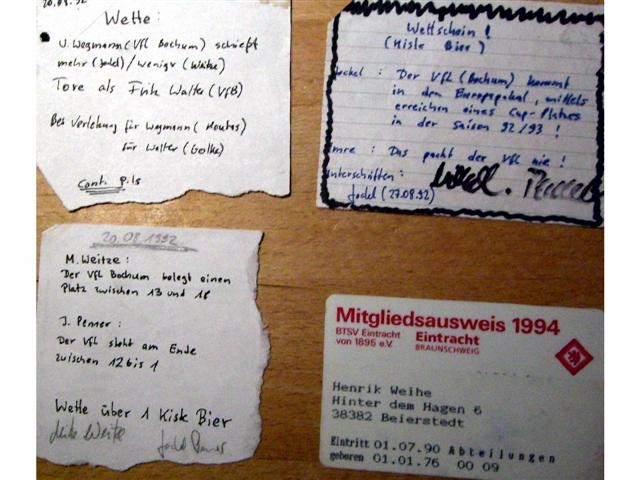 20.08.92
Wette:
U. Wegmann (VfL Bochum) schießt
mehr (Jockel) / weniger (Weihe)
Tore als Fritz Walter (VfB)
Bei Verletzung für Wegmann (Moutas)
für Walter (Golke)
Cont. Pils
Wettschein!
(Kiste Bier)
Jockel: Der VfL (Bochum) kommt
in den Europapokal, mittels
erreichen eines Cup-Platzes
in der Saison 92/93!
Imre: Das packt der VfL nie!
unterschriften:
Jockel (27.08.92)
20.08.1992
M. Weitze:
Der VfL Bochum belegt einen
Platz zwischen 13 und 18
J. Penner:
Der VfL steht am Ende
zwischen 12 bis 1
Wette über 1 Kiste Bier
Mitgliedsausweis 1994
BTSV Eintracht
von 1895 e.V.
Eintracht
BRAUNSCHWEIG
Henrik Weihe
Hinter dem Hagen 6
38382 Beierstedt
Eintritt 01.07.90 Abteilungen
geboren 01.01.76 00 09